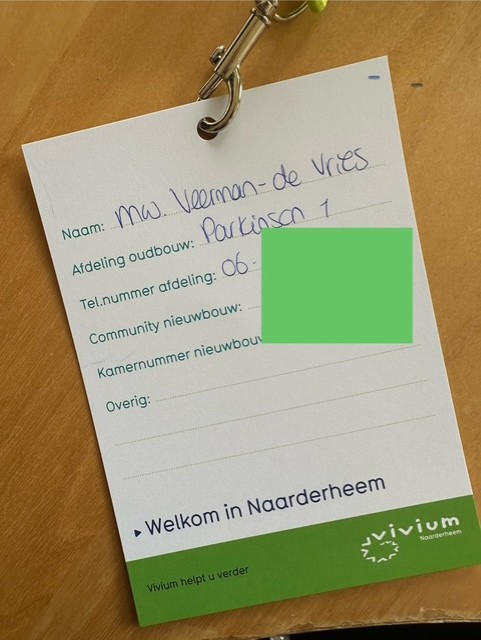 Naam: mw. Veerman-de Vries
Afdeling oudbouw: Parkinson 1
Tel.nummer afdeling: 06-
Community nieuwbouw:
Kamernummer nieuwbouw
Overig:
Welkom in Naarderheem
vivium
Naarderheem
Vivium helpt u verder